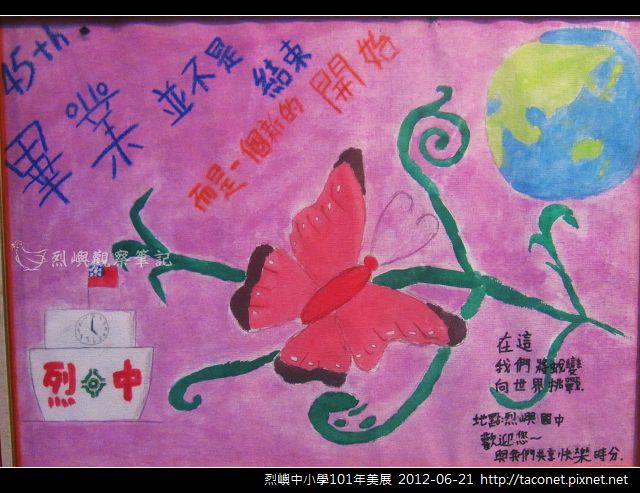 45th.
畢業
並不是
結束
而是一個新的
開始
烈嶼觀察筆記
烈 中
在這
我們將蛻變
向世界挑戰.
地點:烈嶼國中
歡迎您~
與我們共享快樂時分.
烈嶼中小學101年美展 2012-06-21 http://taconet.pixnet.net